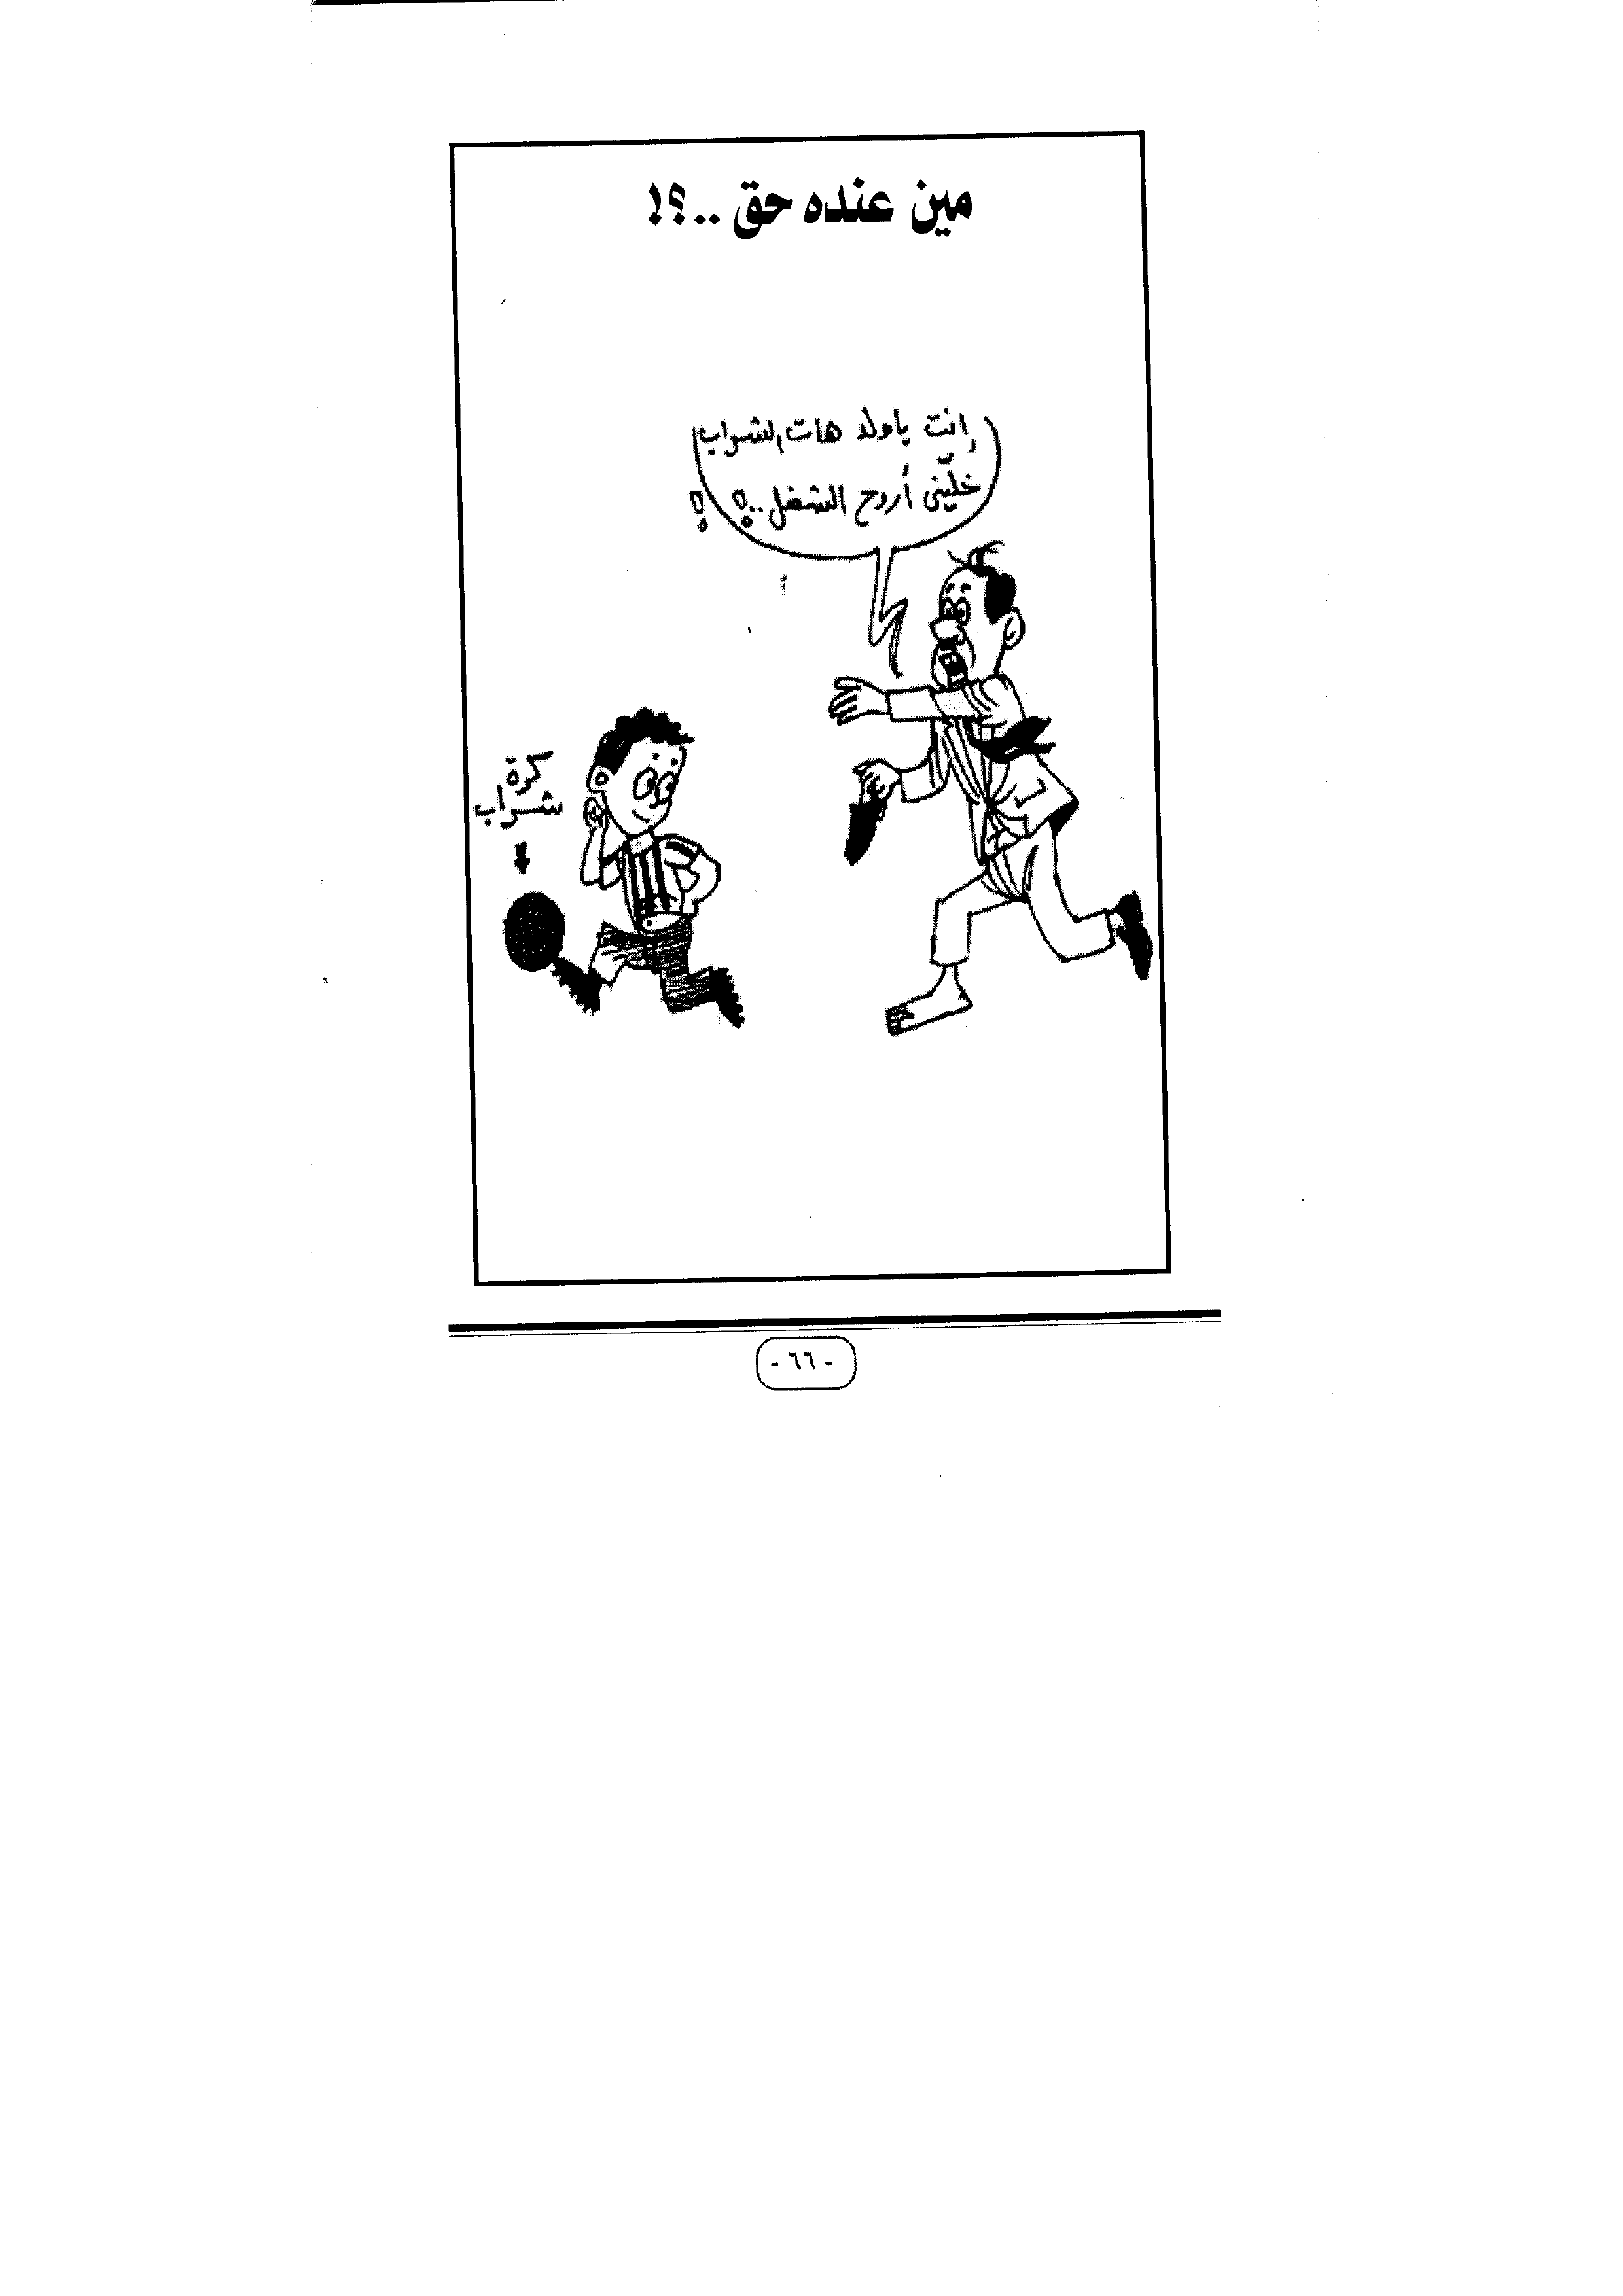 مين عنده حق ..؟!
إنت ياولد هات الشراب
خلّيني أروح الشغل ..! !
كرة
شراب
- ٦٦ -